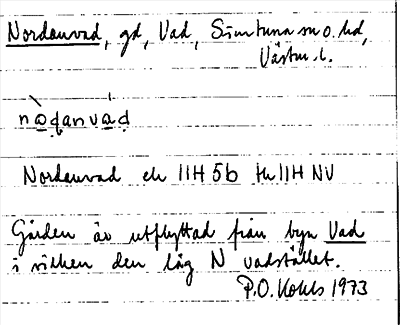 Nordanvad, gd, Vad, Simtuna sn o. hd,
Västm. l.
nòḍanvàḍ
Nordanvad ek 11H 5b tu 11H NV
Gården är utflyttad från byn Vad
i vilken den låg N vadstället.
P.O. Kohls 1973